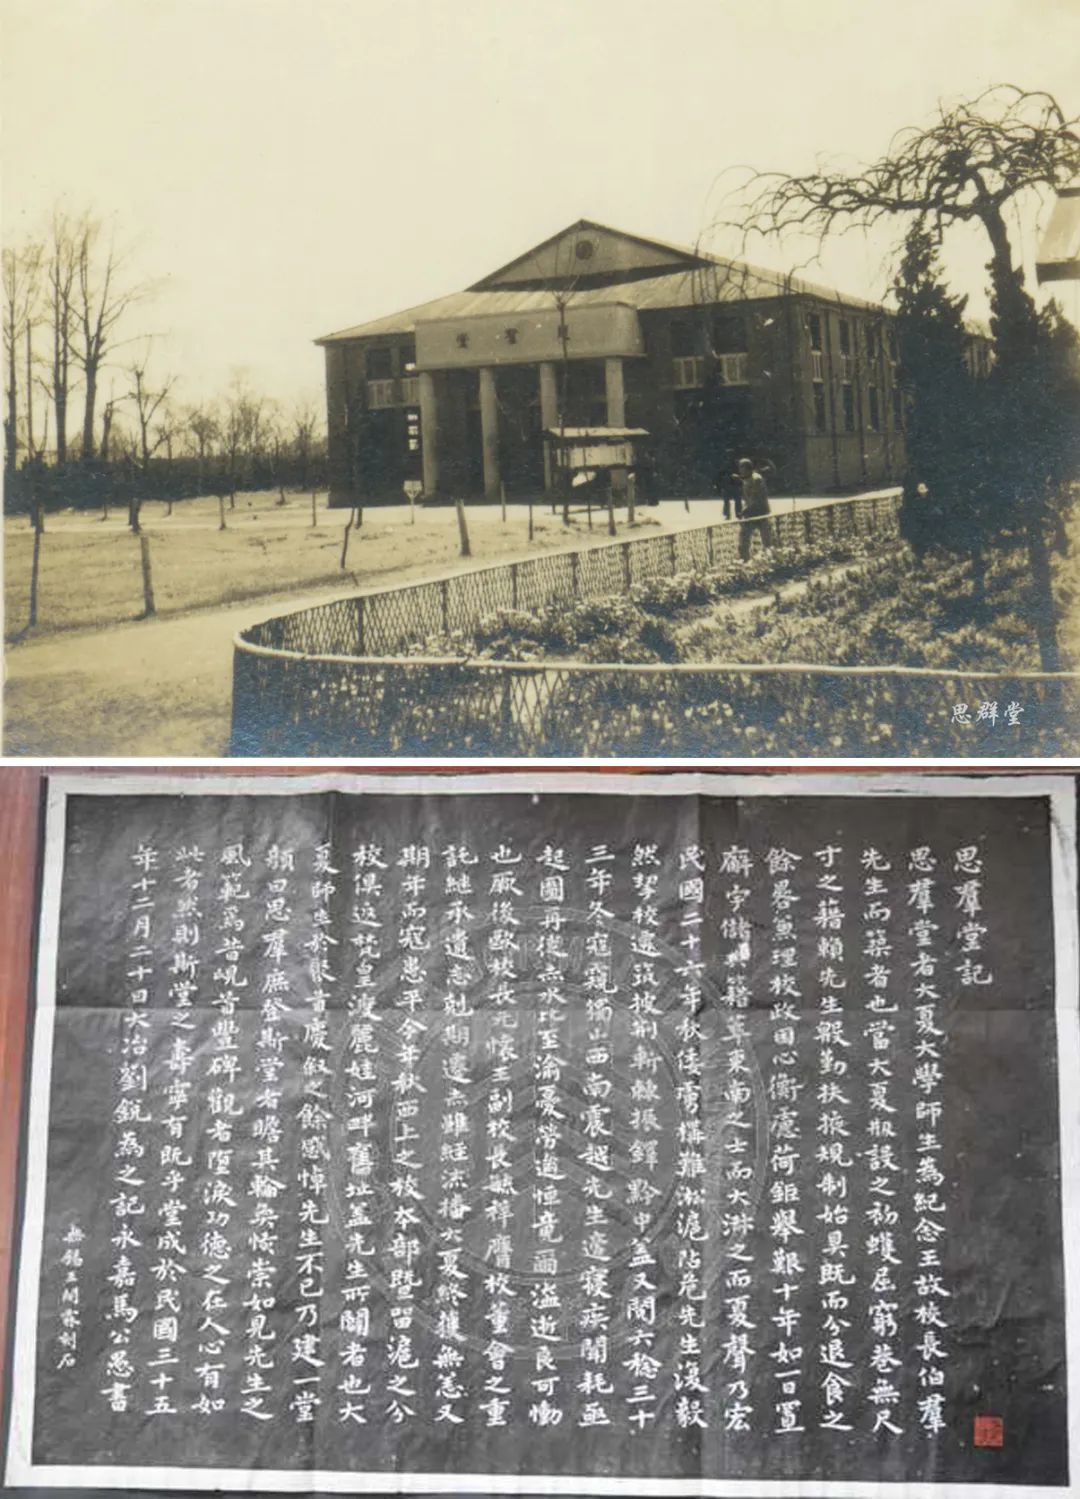 思羣堂
思群堂
思羣堂記
思羣堂者大夏大學師生為紀念王故校長伯羣
先生而築者也當大夏刱設之初蠖屈窮巷無尺
寸之藉賴先生殷勤扶掖規制始具既而分退食之
餘晷兼理校政困心衡慮荷鉅舉艱十年如一日置
廨宇儲籍萃東南之士而大淋之而夏聲乃宏
民國二十六年秋倭虜構難淞滬阽危先生復毅
然挈校遷筑披荊斬棘振鐸黔中蓋又閱六稔三十
三年冬寇窺獨山西南震越先生遘寢疾聞耗亟
起圖再徙赤水比至渝憂勞遘竟爾溘逝良可慟
也厥後歐校長元懷王副校長毓祥膺校董會之重
託繼承遺志剋期遷赤雖經流播大夏終獲無恙又
期年而寇患平今年秋西上之校本部暨留滬之分
校俱返梵皇渡麗娃河畔舊址蓋先生所闢者也大
夏師生於昔慶叙之餘感悼先生不已乃建一堂
顏曰思羣庶登斯堂者瞻其輪奐崇如見先生之
風範焉昔峴首豐碑觀者墮淚功德之在人心有如
此者然則斯堂之壽寧有既乎堂成於民國三十五
年十二月二十日大冶劉銳為之記永嘉馬公愚書
無錫王開霖刻石